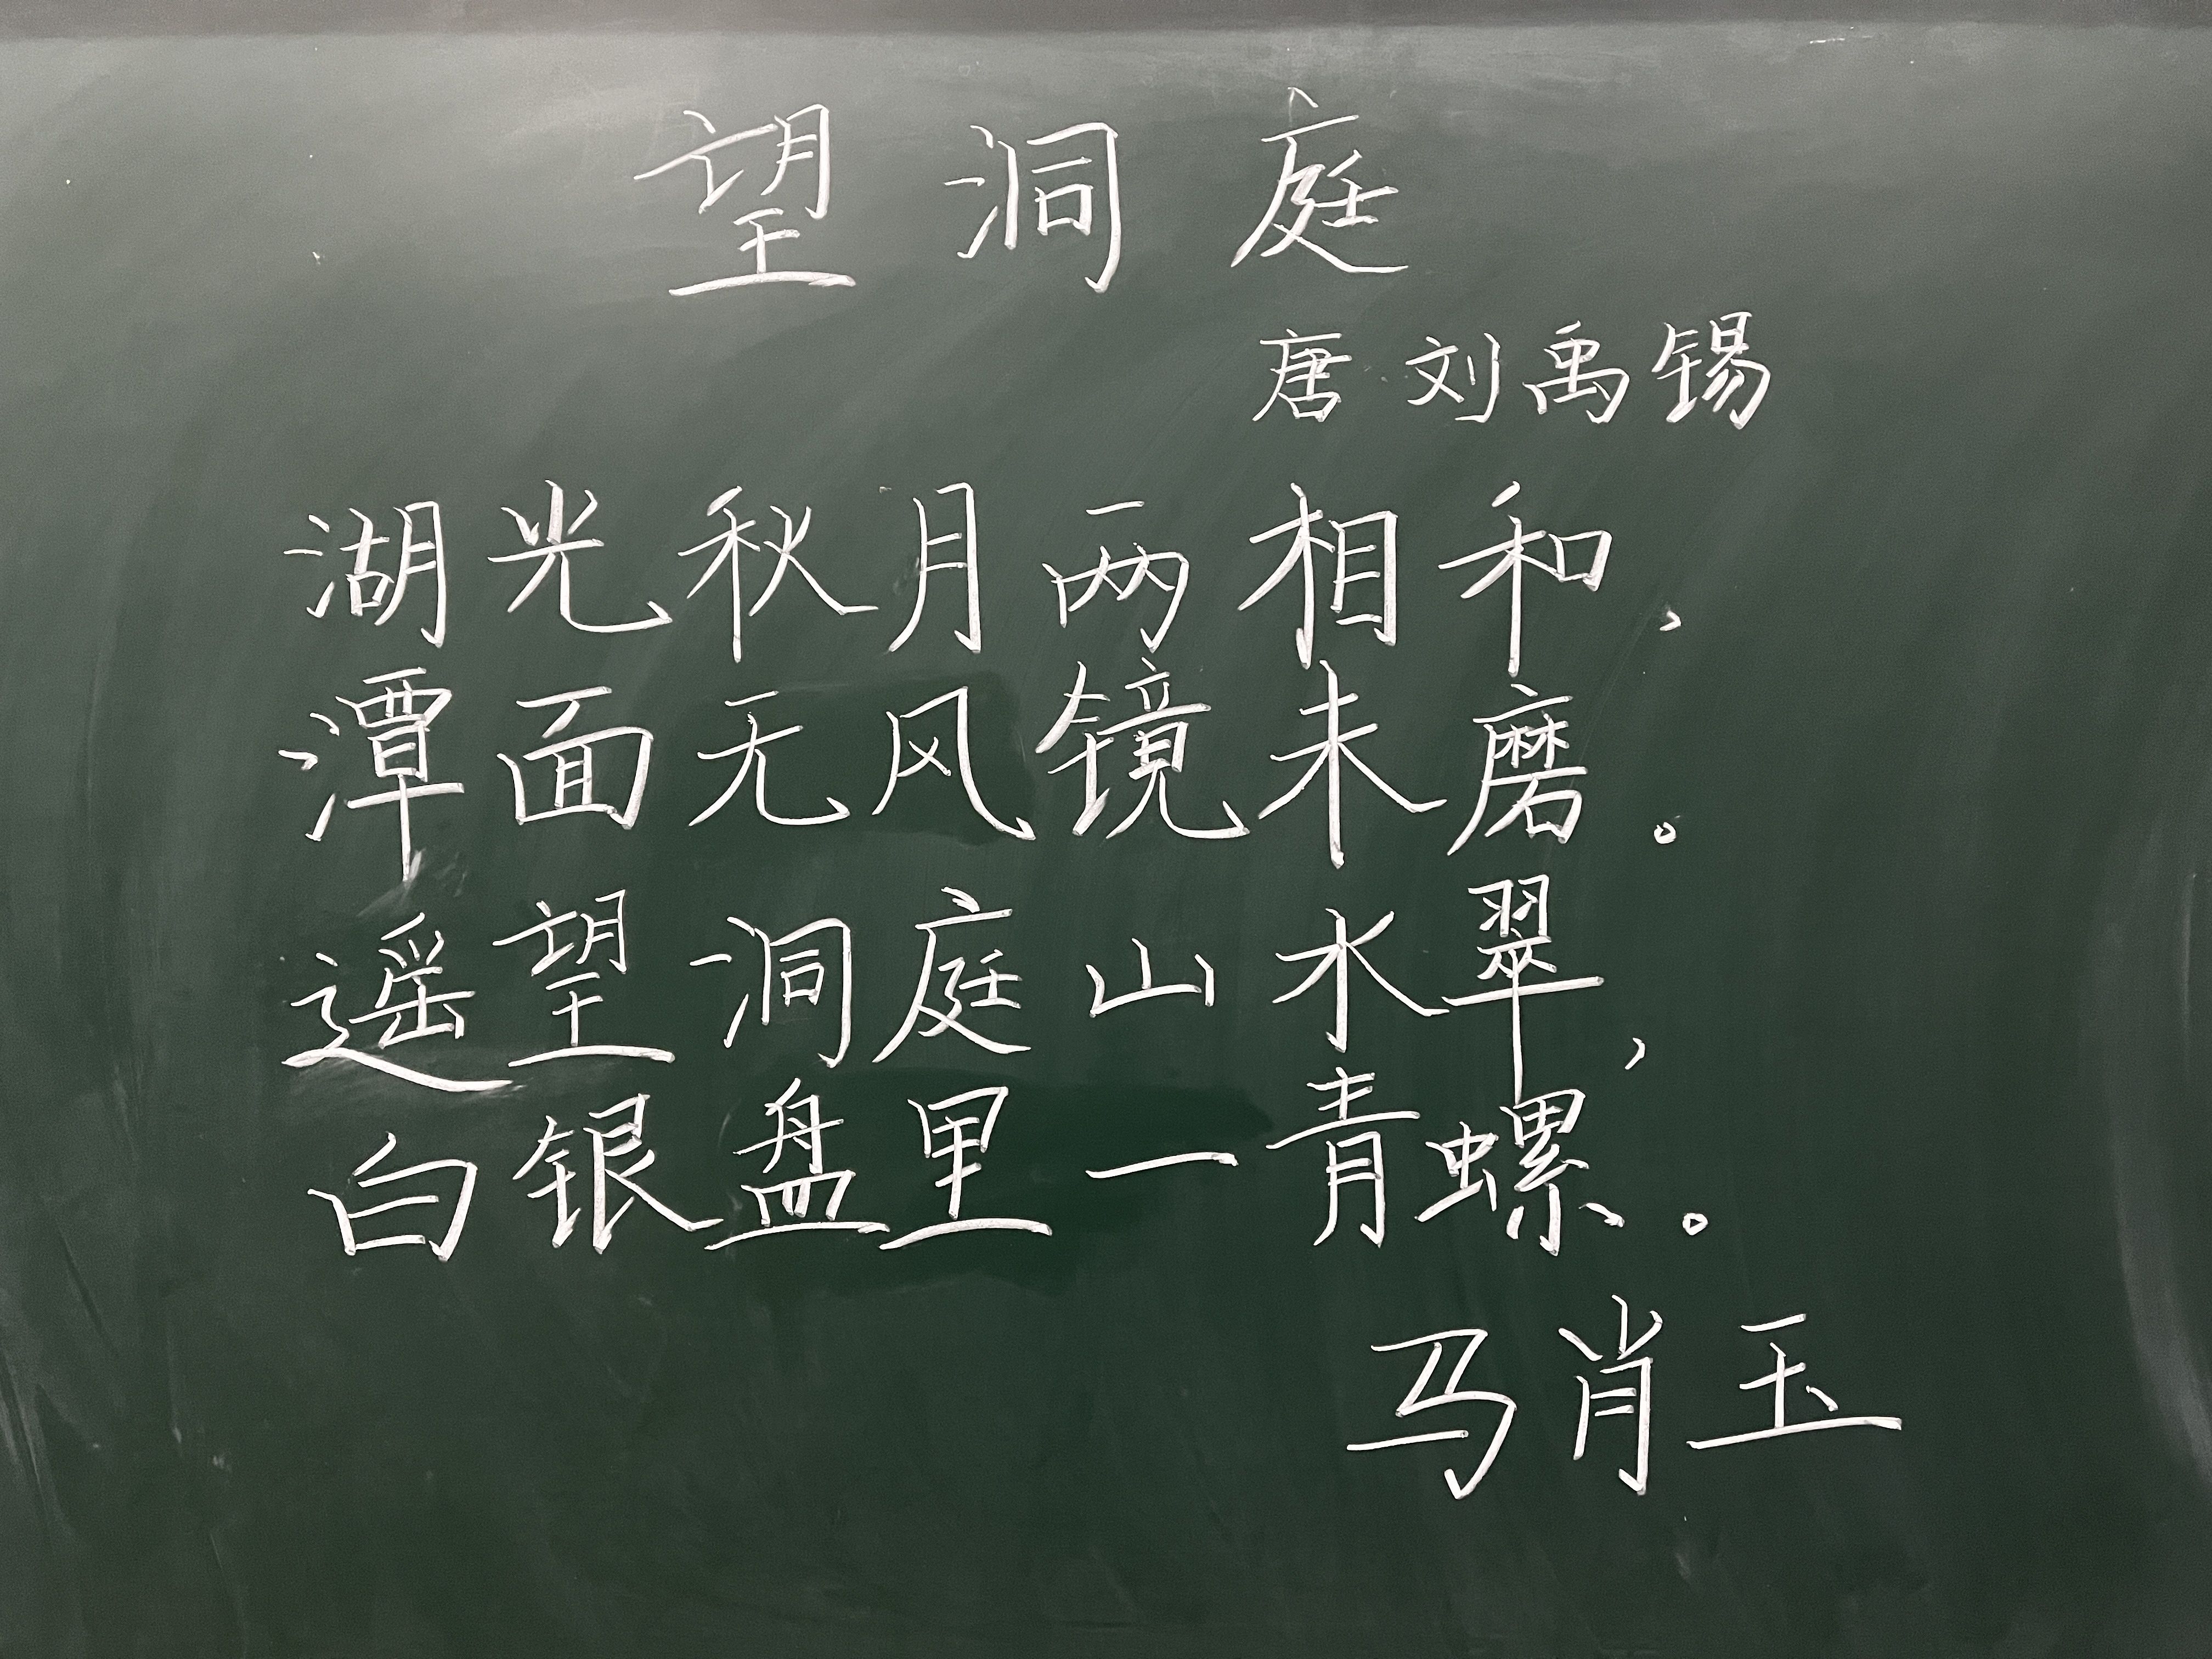 望洞庭
唐·刘禹锡
湖光秋月两相和，
潭面无风镜未磨。
遥望洞庭山水翠，
白银盘里一青螺。
马肖玉